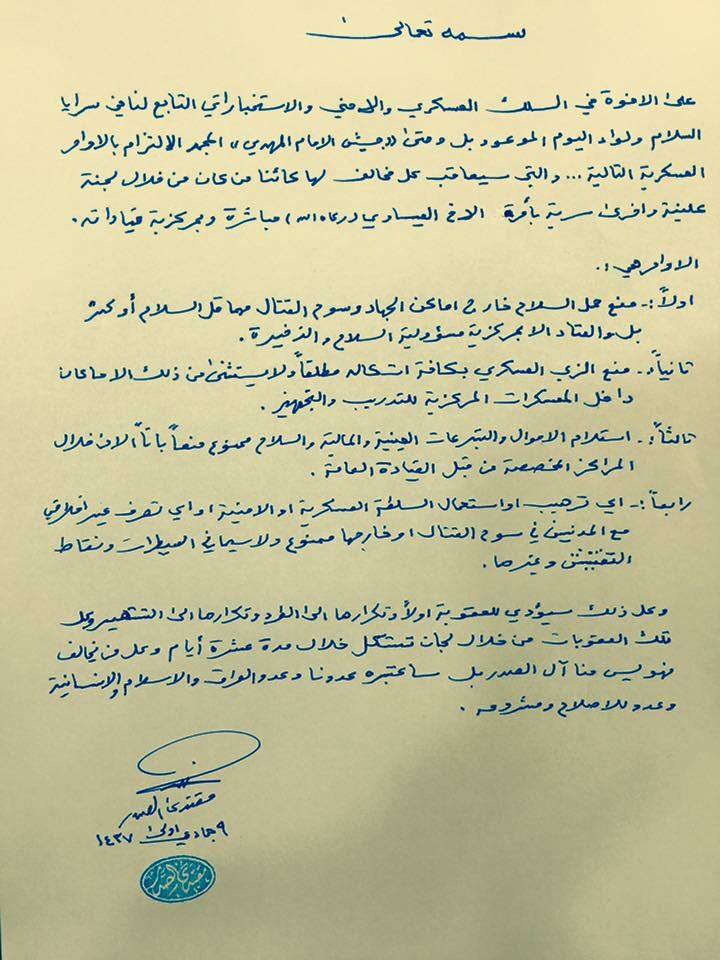 بسمه تعالى
على الاخوة في السلك العسكري والامني والاستخباراتي التابع لنا في سرايا
السلام ولواء اليوم الموعود بل وحتى ((جيش الامام المهدي)) المجمد الالتزام بالاوامر
العسكرية التالية ... والتي سيعاقب كل مخالف لها كائنا من كان من خلال لجنة
علنية واخرى سرية بأمرة الاخ العيساوي (رعاه الله) مباشرة وبمركزية قياداته.
الاوامر هي :.
اولاً :- منع حمل السلاح خارج اماكن الجهاد وسوح القتال مهما قل السلاح أو كثر
بل والعتاد الا بمركزية مسؤولية السلاح والذخيرة.
ثانياً :- منع الزي العسكري بكافة اشكاله مطلقاً ولا يستثنى من ذلك الا ما كان
داخل المعسكرات المركزية للتدريب والتجهيز.
ثالثاً :- استلام الاموال والتبرعات العينية والمالية والسلاح ممنوع منعاً باتاً الا من خلال
المراكز المخصصة من قبل القيادة العامة.
رابعاً :- اي ترهيب او استعمال السلطة العسكرية او الامنية او اي تصرف غير اخلاقي
مع المدنيين في سوح القتال او خارجها ممنوع ولا سيما في السيطرات ونقاط
التفتيش وغيرها.
وكل ذلك سيؤدي للعقوبة اولاً وتكرارها الى الطرد وتكرارها الى التشهير وكل
تلك العقوبات من خلال لجان تشكل خلال مدة عشرة أيام وكل من يخالف
فهو ليس منا آل الصدر بل سأعتبره عدونا وعدو العراق والاسلام والانسانية
وعدو للاصلاح ومشروعه.
مقتدى الصدر
٩ جمادي اولى ١٤٣٧
مقتدى الصدر